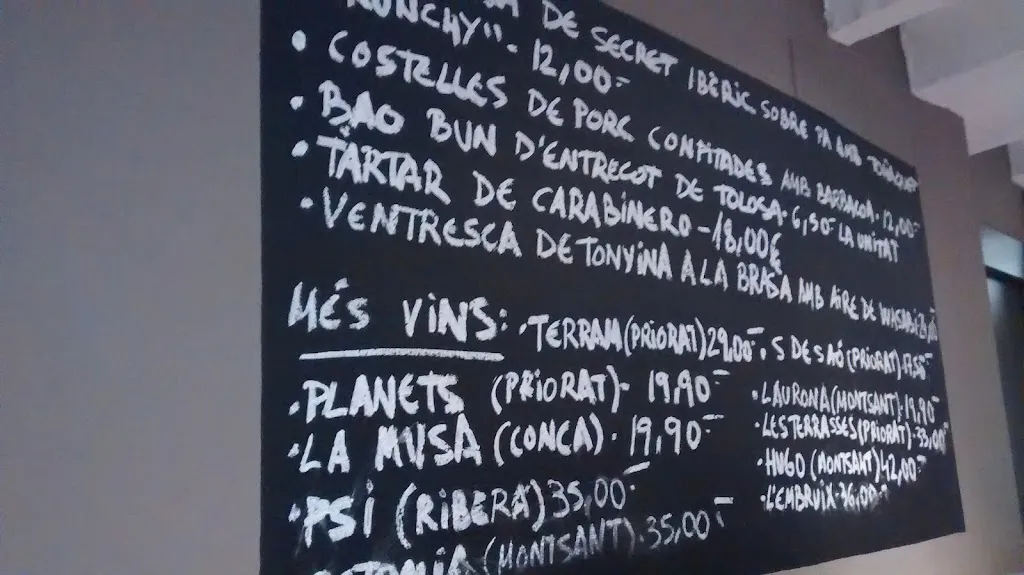 DE SECRET IBÈRIC SOBRE PA AMB TOMÀQUET
12,00-
· COSTELLES DE PORC CONFITADES AMB BARBACOA· 12,00-
· BAO BUN D'ENTRECOT DE TOLOSA· 6,50- LA UNITAT
· TÀRTAR DE CARABINERO - 18,00€
· VENTRESCA DE TONYINA A LA BRASA AMB AIRE DE WASABI
MÉS VINS: · TERRAM (PRIORAT) 29,00- · S DE SAÓ (PRIORAT)
· PLANETS (PRIORAT)- 19,90-
· LA MUSA (CONCA)· 19,90-
· PSI (RIBERA) 35,00-
(MONTSANT)· 35,00-
· LAURONA (MONTSANT)· 19,90-
· LES TERRASSES (PRIORAT)· 35,00-
· HUGO (MONTSANT) 42,00-
· L'EMBRUIX·